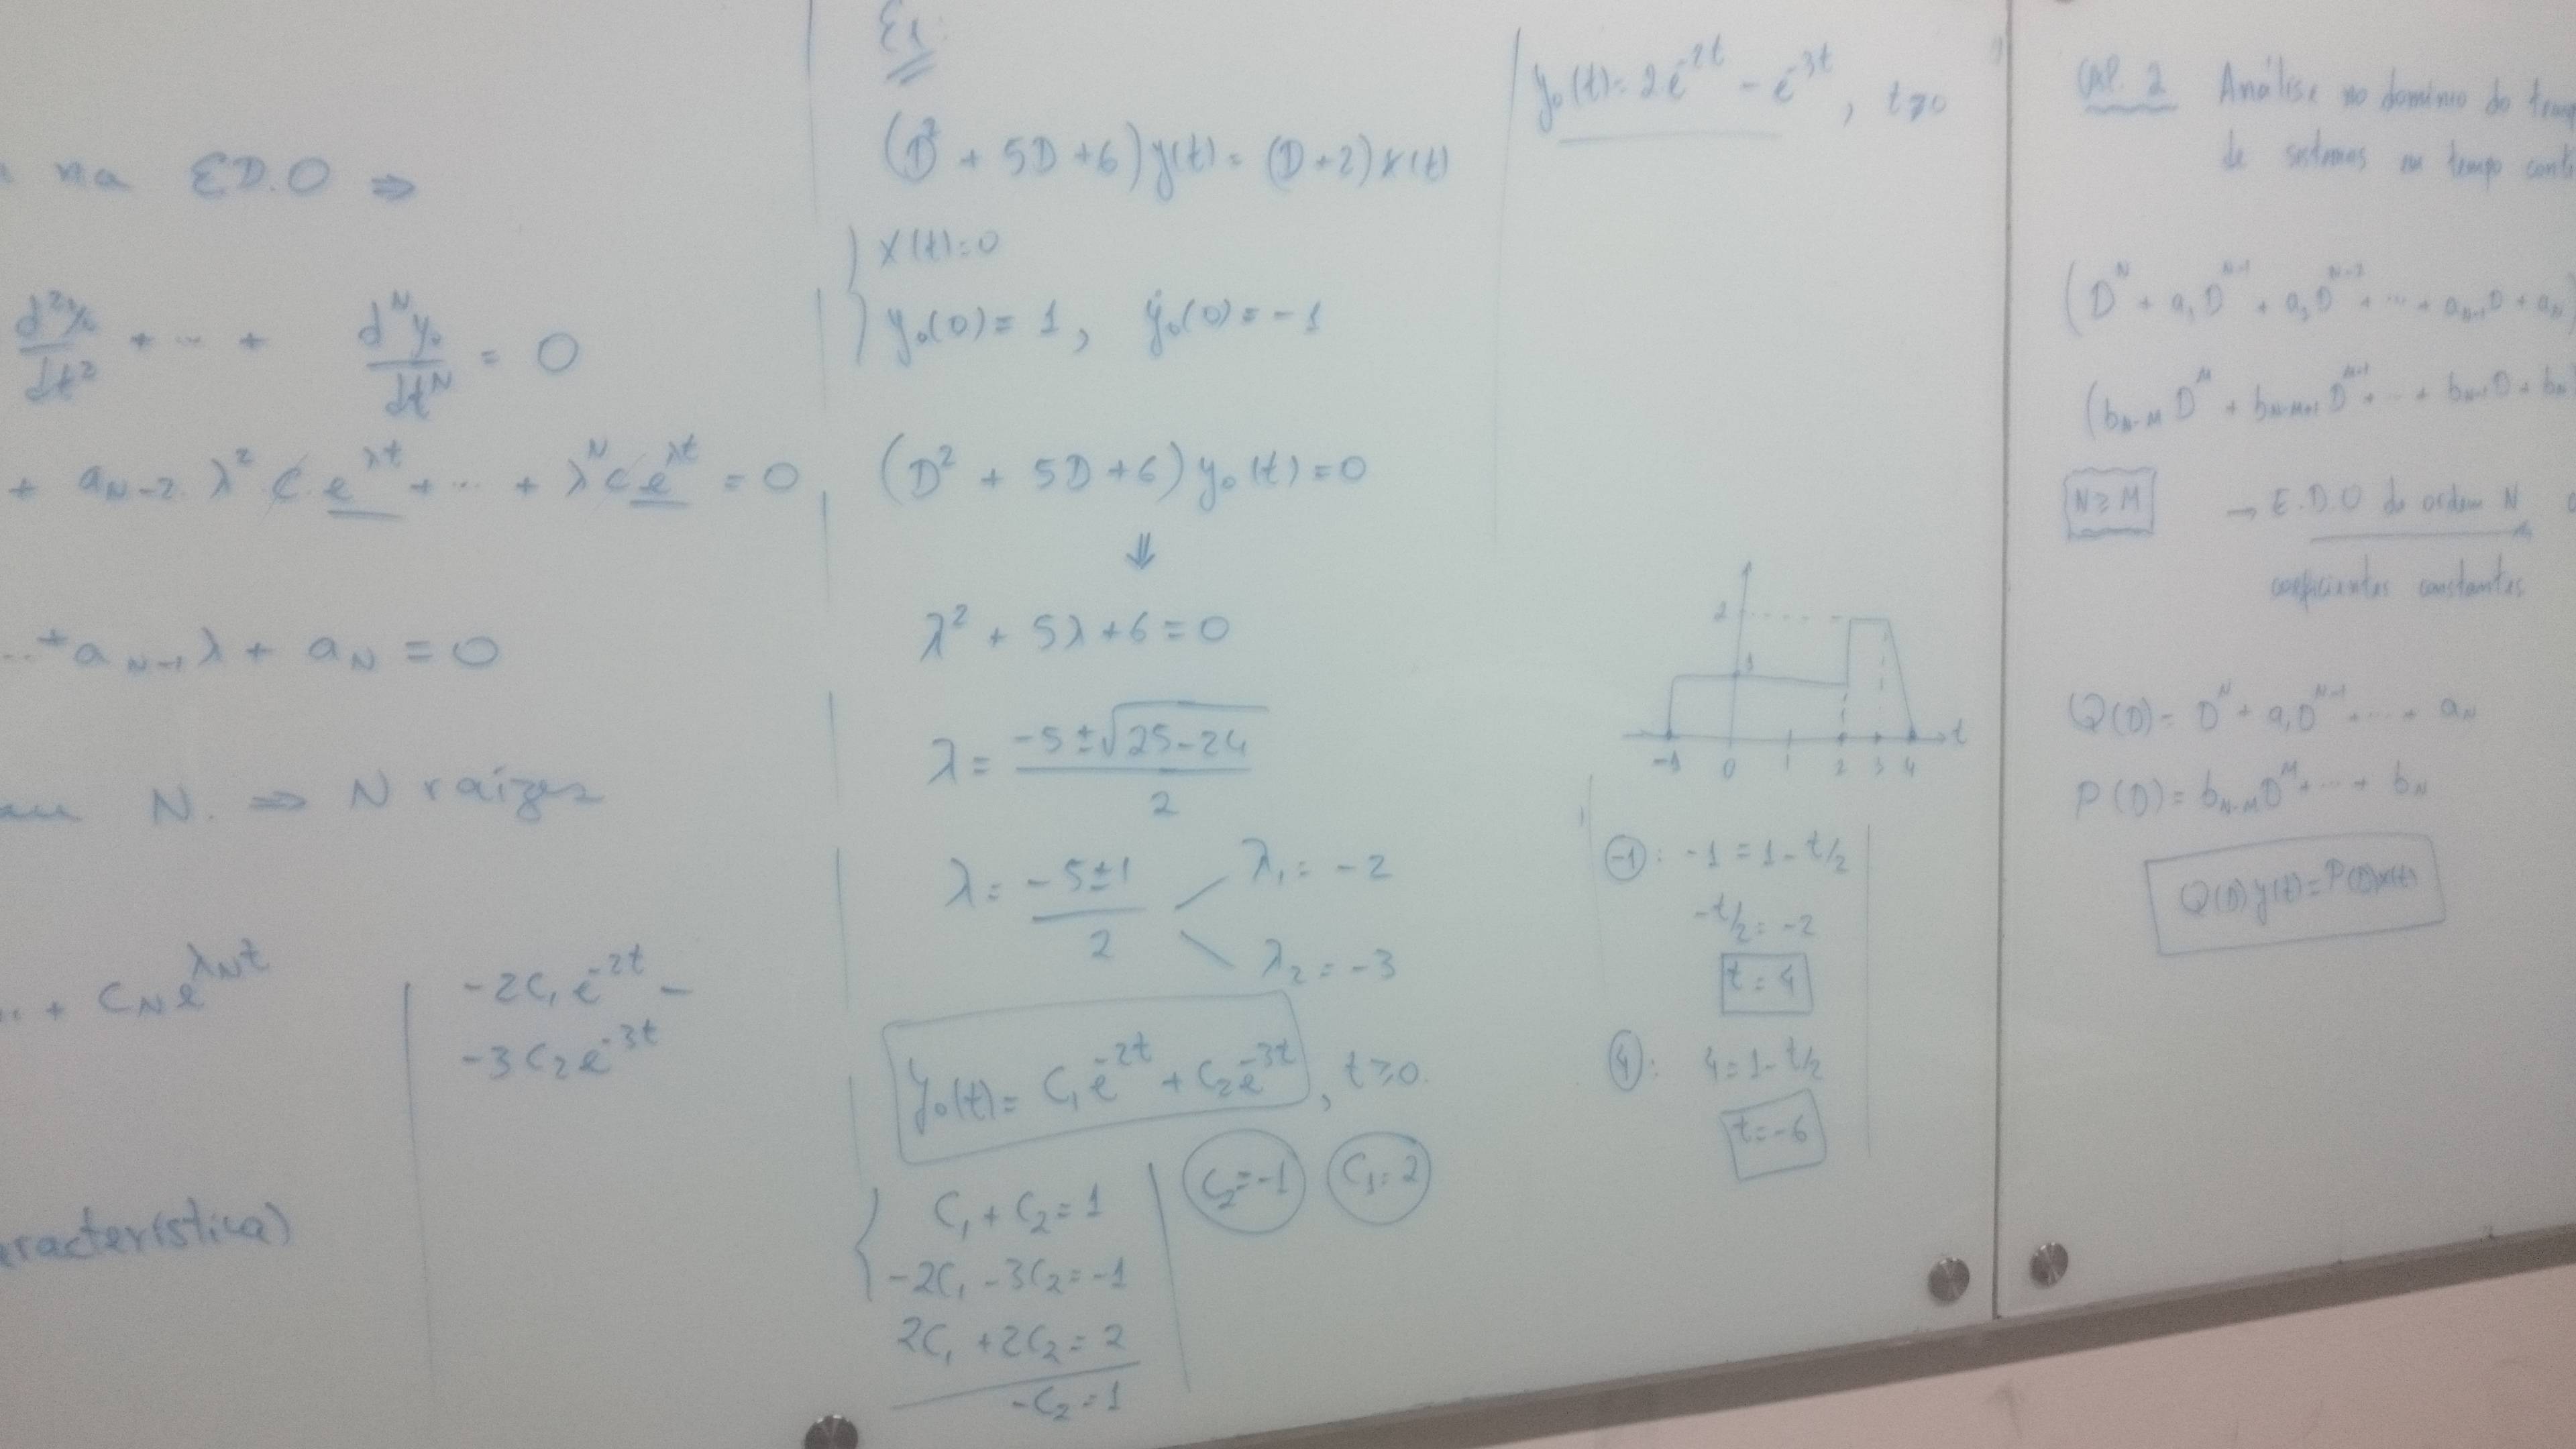 na E.D.O ⇒
d²y₀/dt² + ... + dᴺy₀/dtᴺ = 0
+ a_{N-2} λ² C e^{λt} + ... + λᴺ C e^{λt} = 0
... + a_{N-1} λ + a_N = 0
N. ⇒ N raízes
... + C_N e^{λ_N t}
-2C₁ e^{-2t} -
-3C₂ e^{-3t}
Ex:
(D² + 5D + 6) y(t) = (D + 2) x(t)
x(t) = 0
y₀(0) = 1, ẏ₀(0) = -1
(D² + 5D + 6) y₀(t) = 0
⇓
λ² + 5λ + 6 = 0
λ = (-5 ± √(25-24))/2
λ = (-5 ± 1)/2
λ₁ = -2
λ₂ = -3
y₀(t) = C₁ e^{-2t} + C₂ e^{-3t}, t ≥ 0.
C₁ + C₂ = 1
-2C₁ - 3C₂ = -1
2C₁ + 2C₂ = 2
-C₂ = 1
C₂ = -1 C₁ = 2
y₀(t) = 2e^{-2t} - e^{-3t}, t ≥ 0
2
1
-1 0 1 2 3 4 t
-1: -1 = 1 - t/2
-t/2 = -2
t = 4
4: 4 = 1 - t/2
t = -6
Cap. 2 Análise no domínio do
de sistemas em tempo
(Dᴺ + a₁ Dᴺ⁻¹ + a₂ Dᴺ⁻² + ... + a_{N-1} D + a_N)
(b_{N-M} Dᴹ + b_{N-M+1} Dᴹ⁻¹ + ... + b_{N-1} D + b_N)
N ≥ M → E.D.O de ordem N
coeficientes constantes
Q(D) = Dᴺ + a₁ Dᴺ⁻¹ + ... + a_N
P(D) = b_{N-M} Dᴹ + ... + b_N
Q(D) y(t) = P(D) x(t)